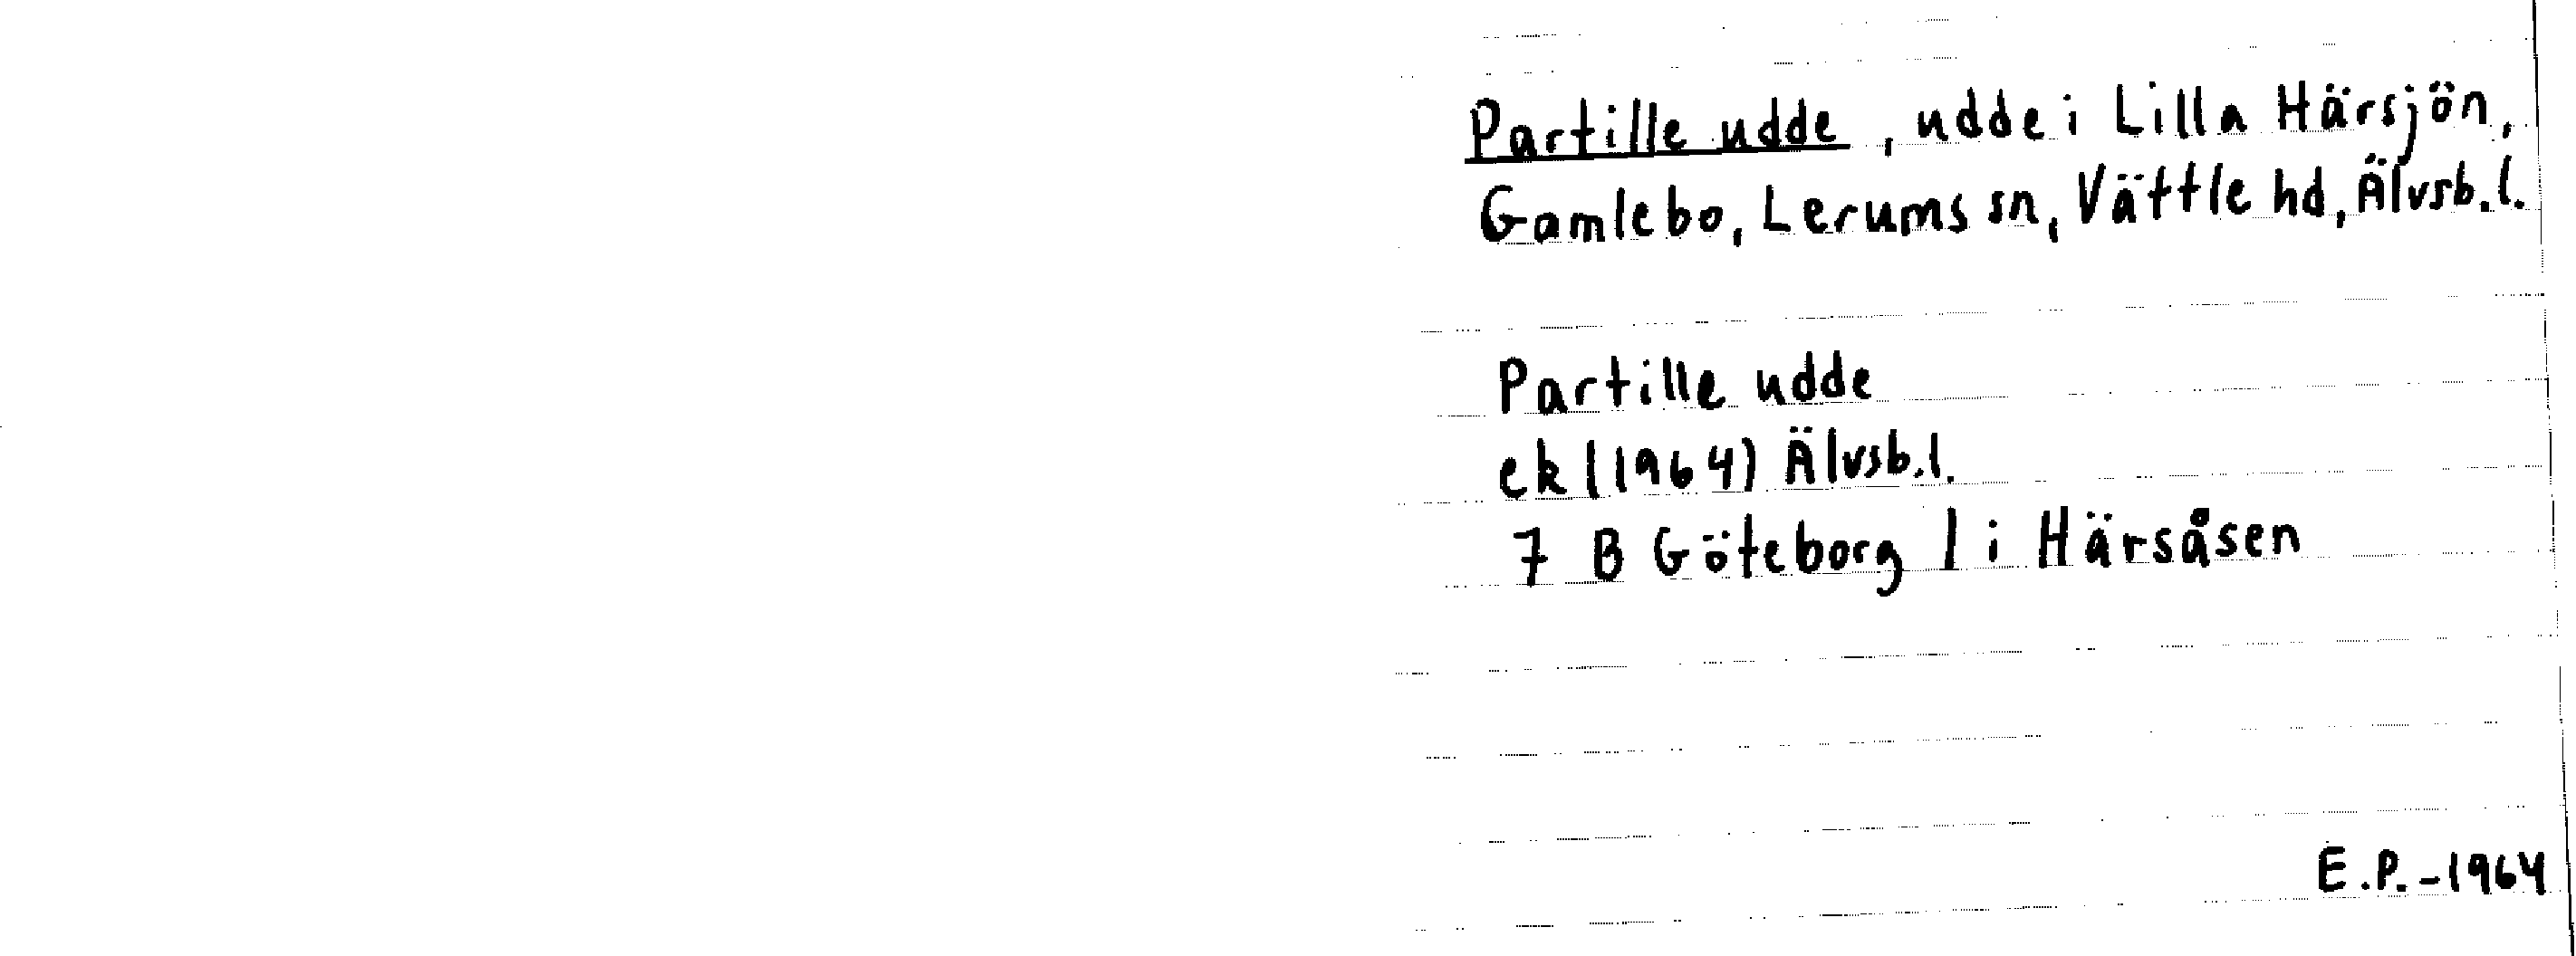 Partille udde, udde i Lilla Härsjön,
Gamlebo, Lerums sn, Vättle hd, Älvsb.l.
Partille udde
ek (1964) Älvsb.l.
7 B Göteborg 1 i Härsåsen
E.P.-1964